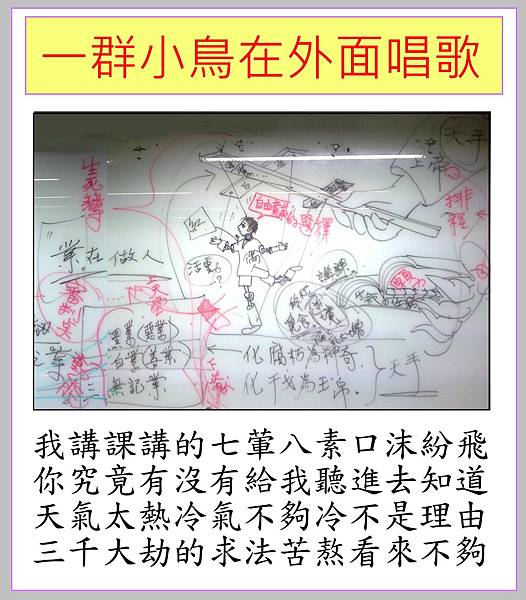 一群小鳥在外面唱歌
天手
上帝
排程
生死簿
自由意志的選擇
業在做人
活動
偶
講課
天啟
黑業(惡業)
白業(善業)
無記業
化腐朽為神奇
化干戈為玉帛
天手
我講課講的七葷八素口沫紛飛
你究竟有沒有給我聽進去知道
天氣太熱冷氣不夠冷不是理由
三千大劫的求法苦熬看來不夠